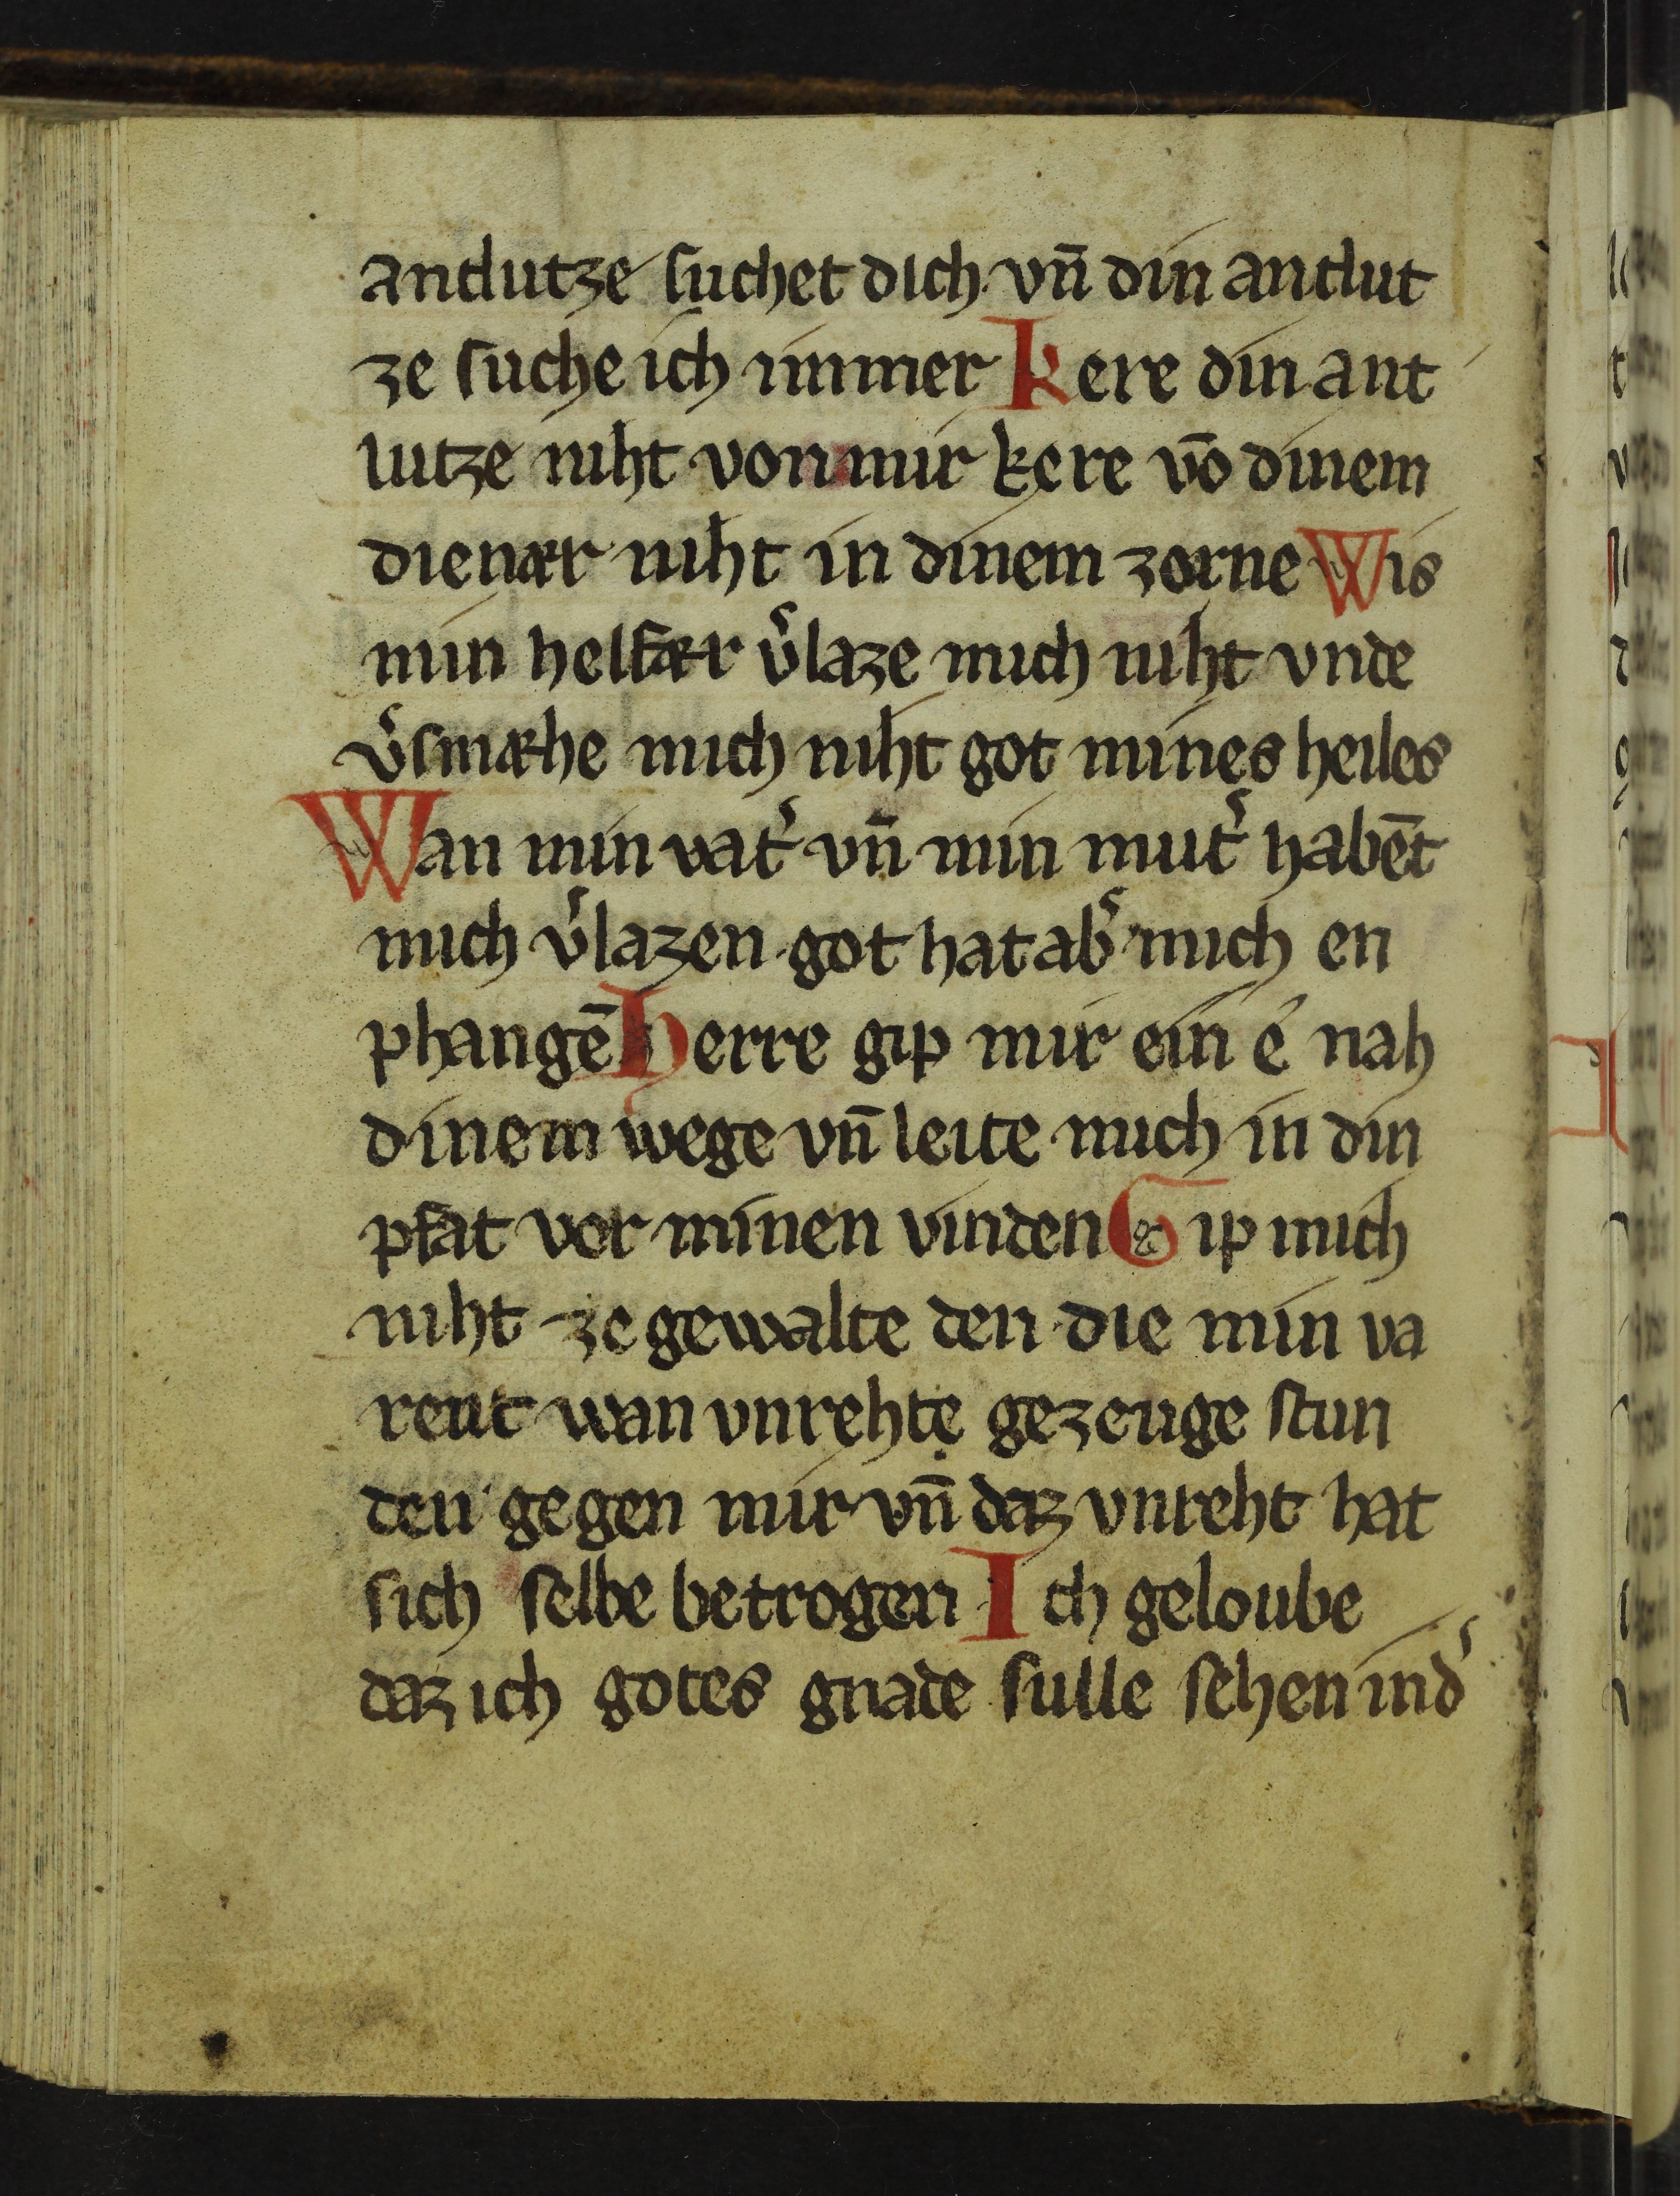 antlutze suchet dich. vn̄ din antlut
ze suche ich immer Kere din ant
lutze niht von mir kere vō dinem
dienær niht in dinem zorne Wis
min helfær v͛laze mich niht vnde
v͛smæhe mich niht got mines heiles
Wan min vat͛ vn̄ min mut͛ habēt
mich v͛lazen got hat ab͛ mich en
phangē Herre gip mir ein é nah
dinem wege vn̄ leite mich in din
pfat vor minen vinden Gip mich
niht ze gewalte den die min va
rent wan vnrehte gezeuge stun
den gegen mir vn̄ daz vnreht hat
sich selbe betrogen Ich geloube
daz ich gotes gnade sulle sehen in d͛